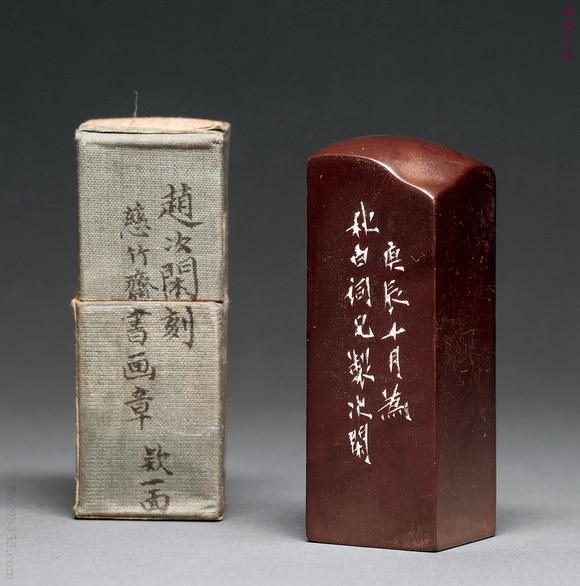 趙次閑刻
慈竹齋書画章
欵一面
庚辰十月為
秋白詞兄製次閑